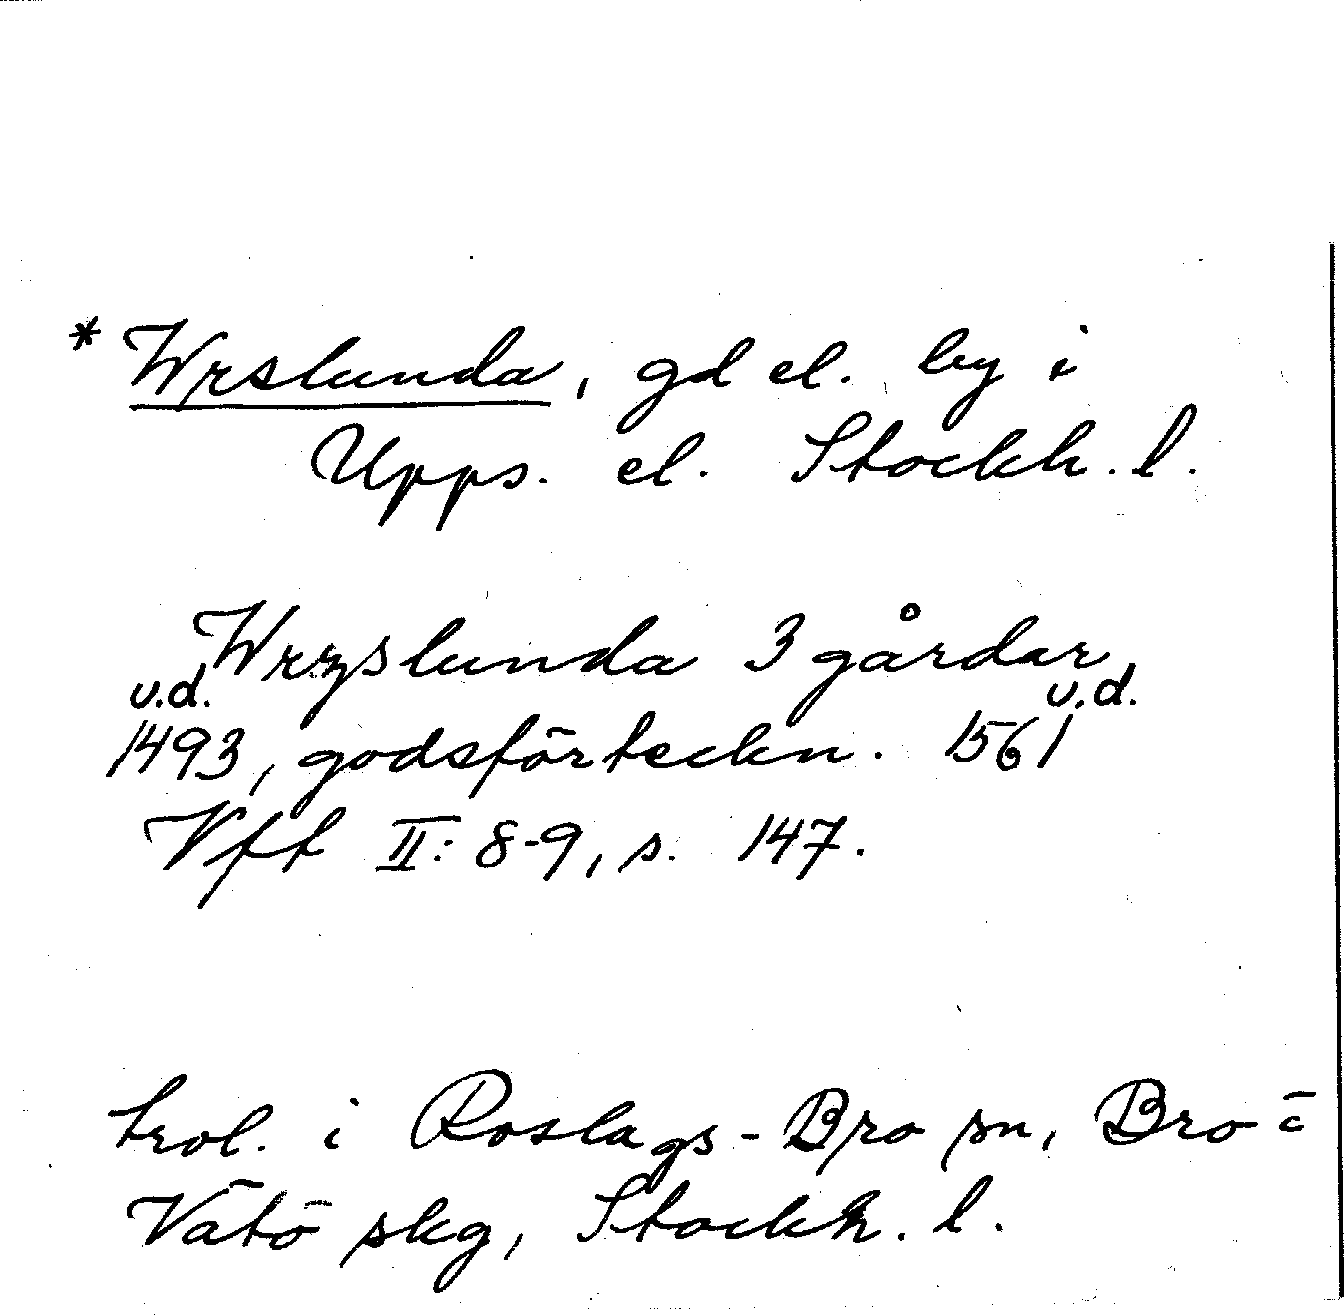 * Wrslunda, gd el. by i
Upps. el. Stockh. l.
Wrzslunda 3 gårdar
u.d. u.d.
1493, godsförteckn. 1561
Vff II: 8-9, s. 147.
trol. i Roslags-Bro sn, Bro o
Vätö skg, Stockh. l.